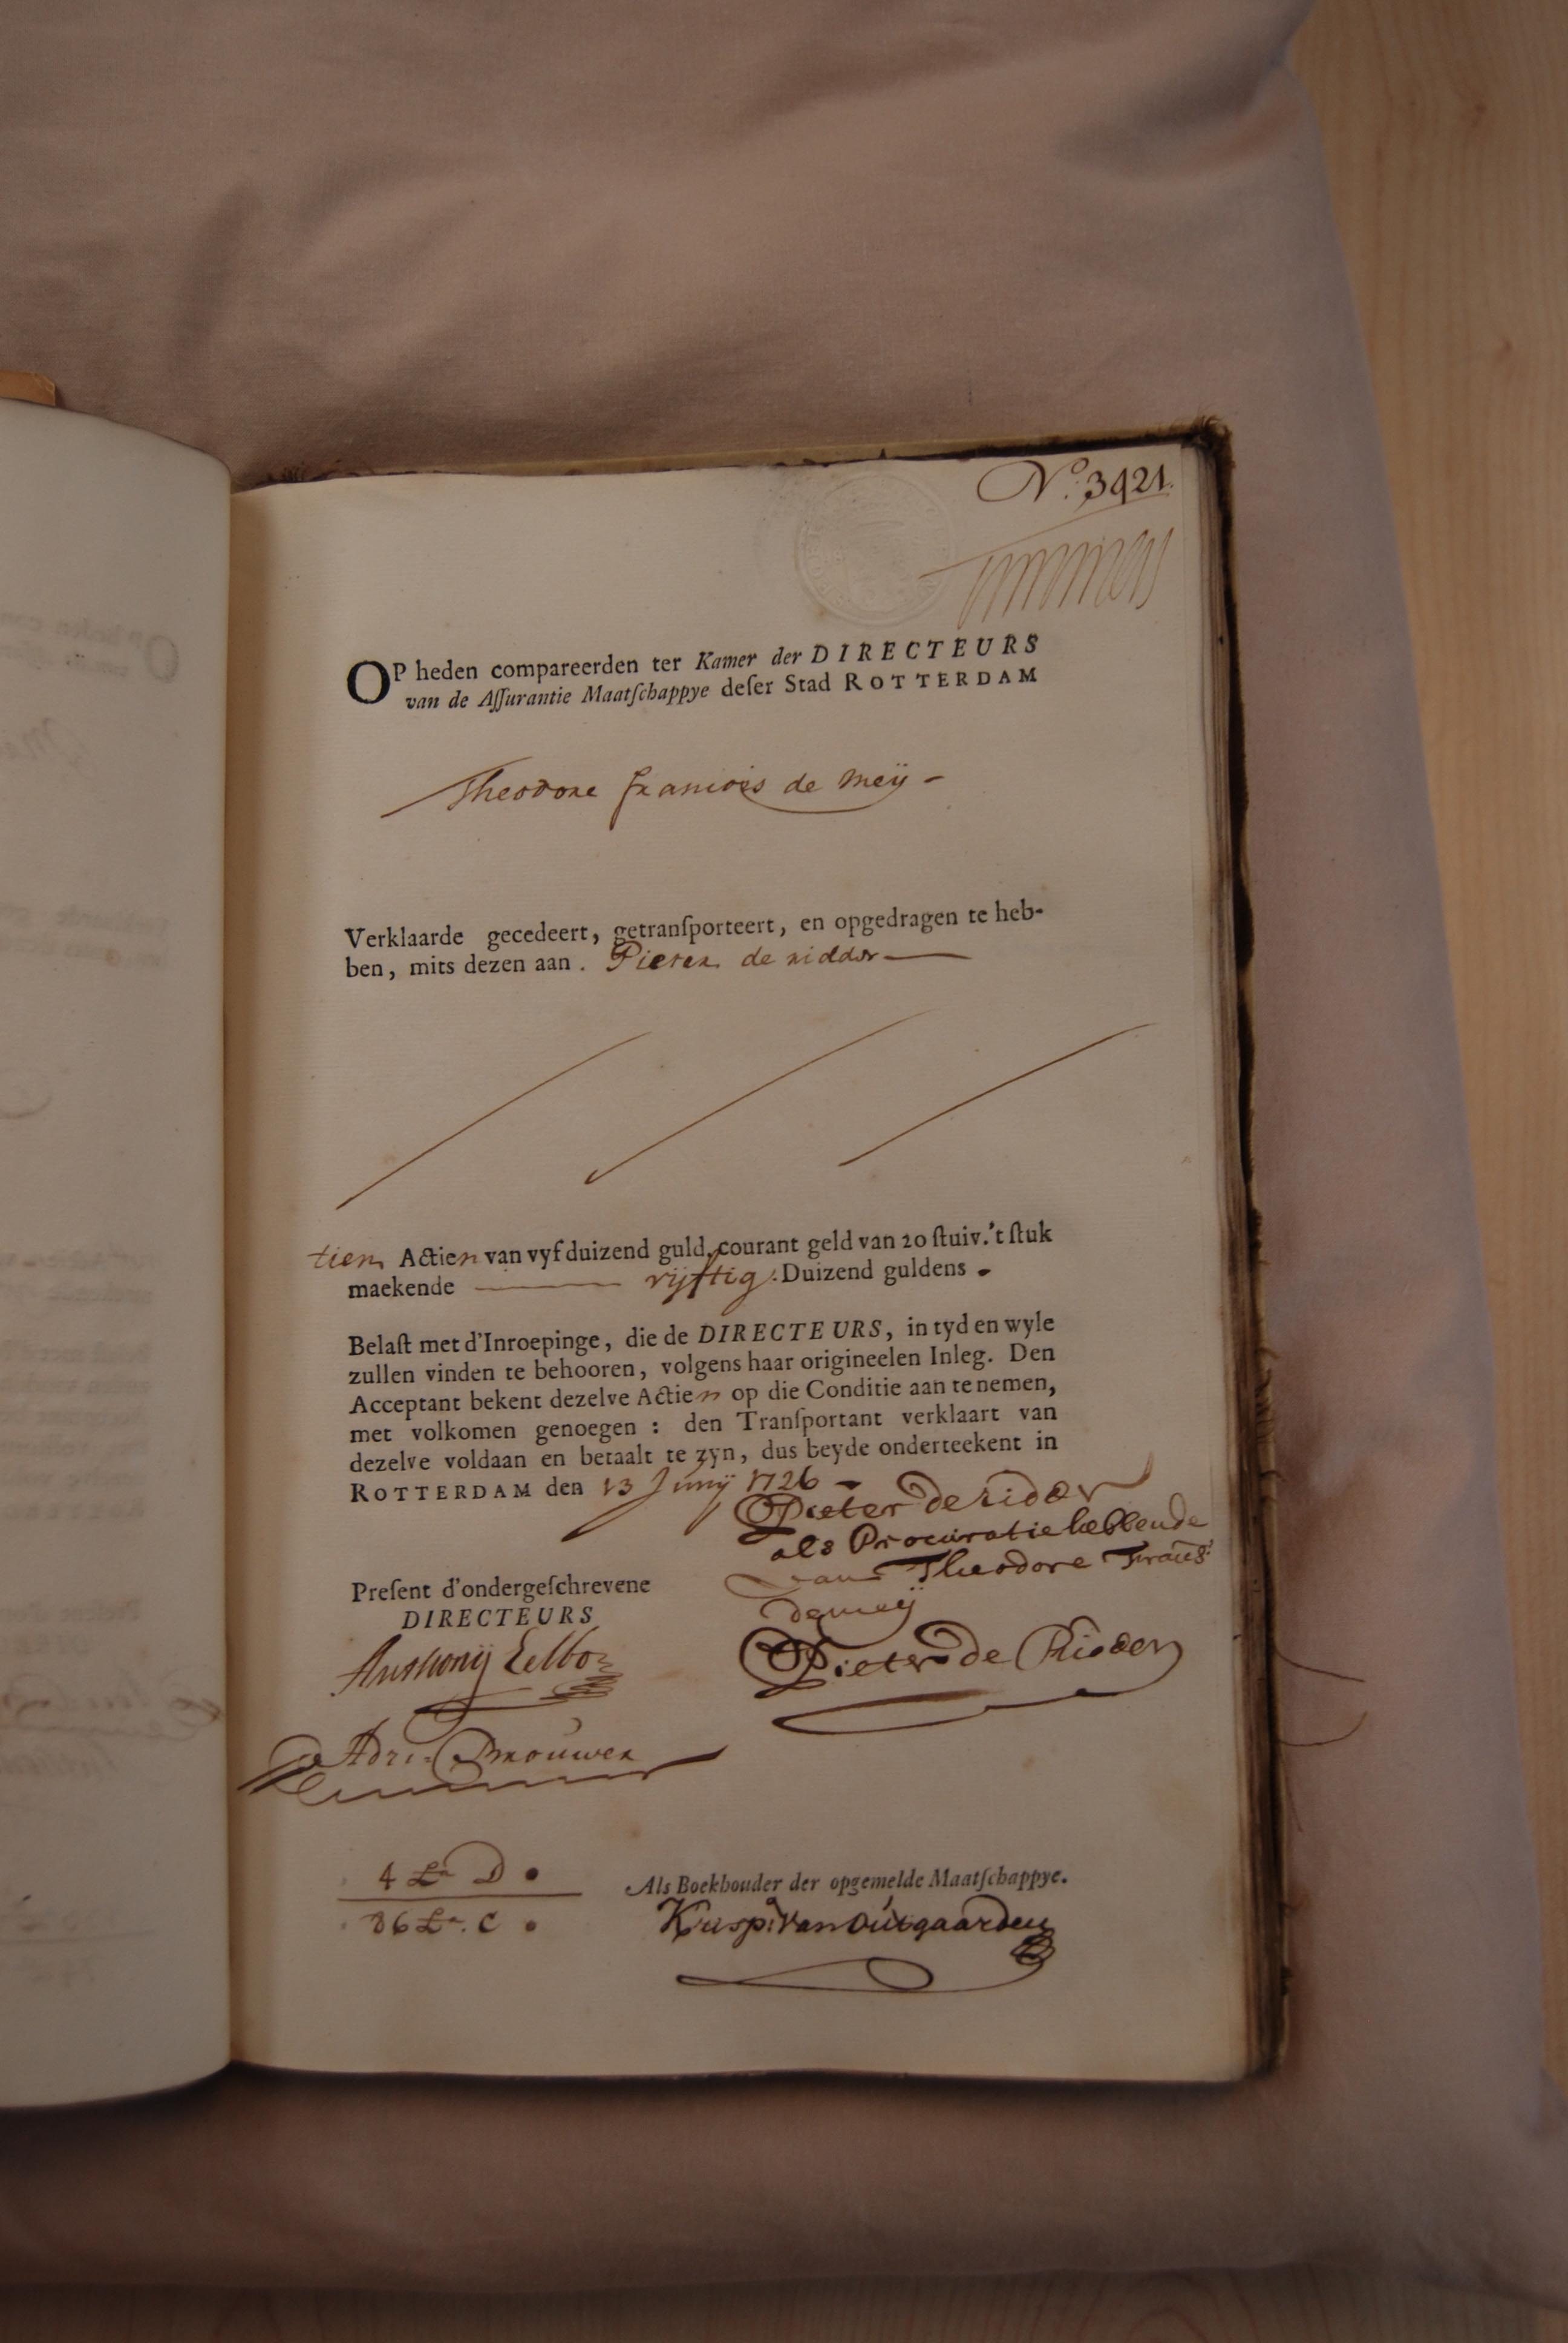 No. 3421.
OP heden compareerden ter Kamer der DIRECTEURS
van de Aſſurantie Maatſchappye deſer Stad ROTTERDAM
Theodore francois de Meÿ -
Verklaarde gecedeert, getranſporteert, en opgedragen te heb-
ben, mits dezen aan. Pieter de ridder
tien Actien van vyf duizend guld. courant geld van 20 ſtuiv. 't ſtuk
maekende vijftig: Duizend guldens.
Belaſt met d'Inroepinge, die de DIRECTEURS, in tyd en wyle
zullen vinden te behooren, volgens haar origineelen Inleg. Den
Acceptant bekent dezelve Actien op die Conditie aan te nemen,
met volkomen genoegen : den Tranſportant verklaart van
dezelve voldaan en betaalt te zyn, dus beyde onderteekent in
ROTTERDAM den 13 Junij 1726 -
Pieter de Ridder
als Procuratie hebbende
van Theodore Frans:
de meÿ
Preſent d'ondergeſchrevene
DIRECTEURS
Pieter de Ridder
Adr: Brouwer
4 La D
86 La. C
Als Boekhouder der opgemelde Maatſchappye.
Krisp: Van Outgaarden